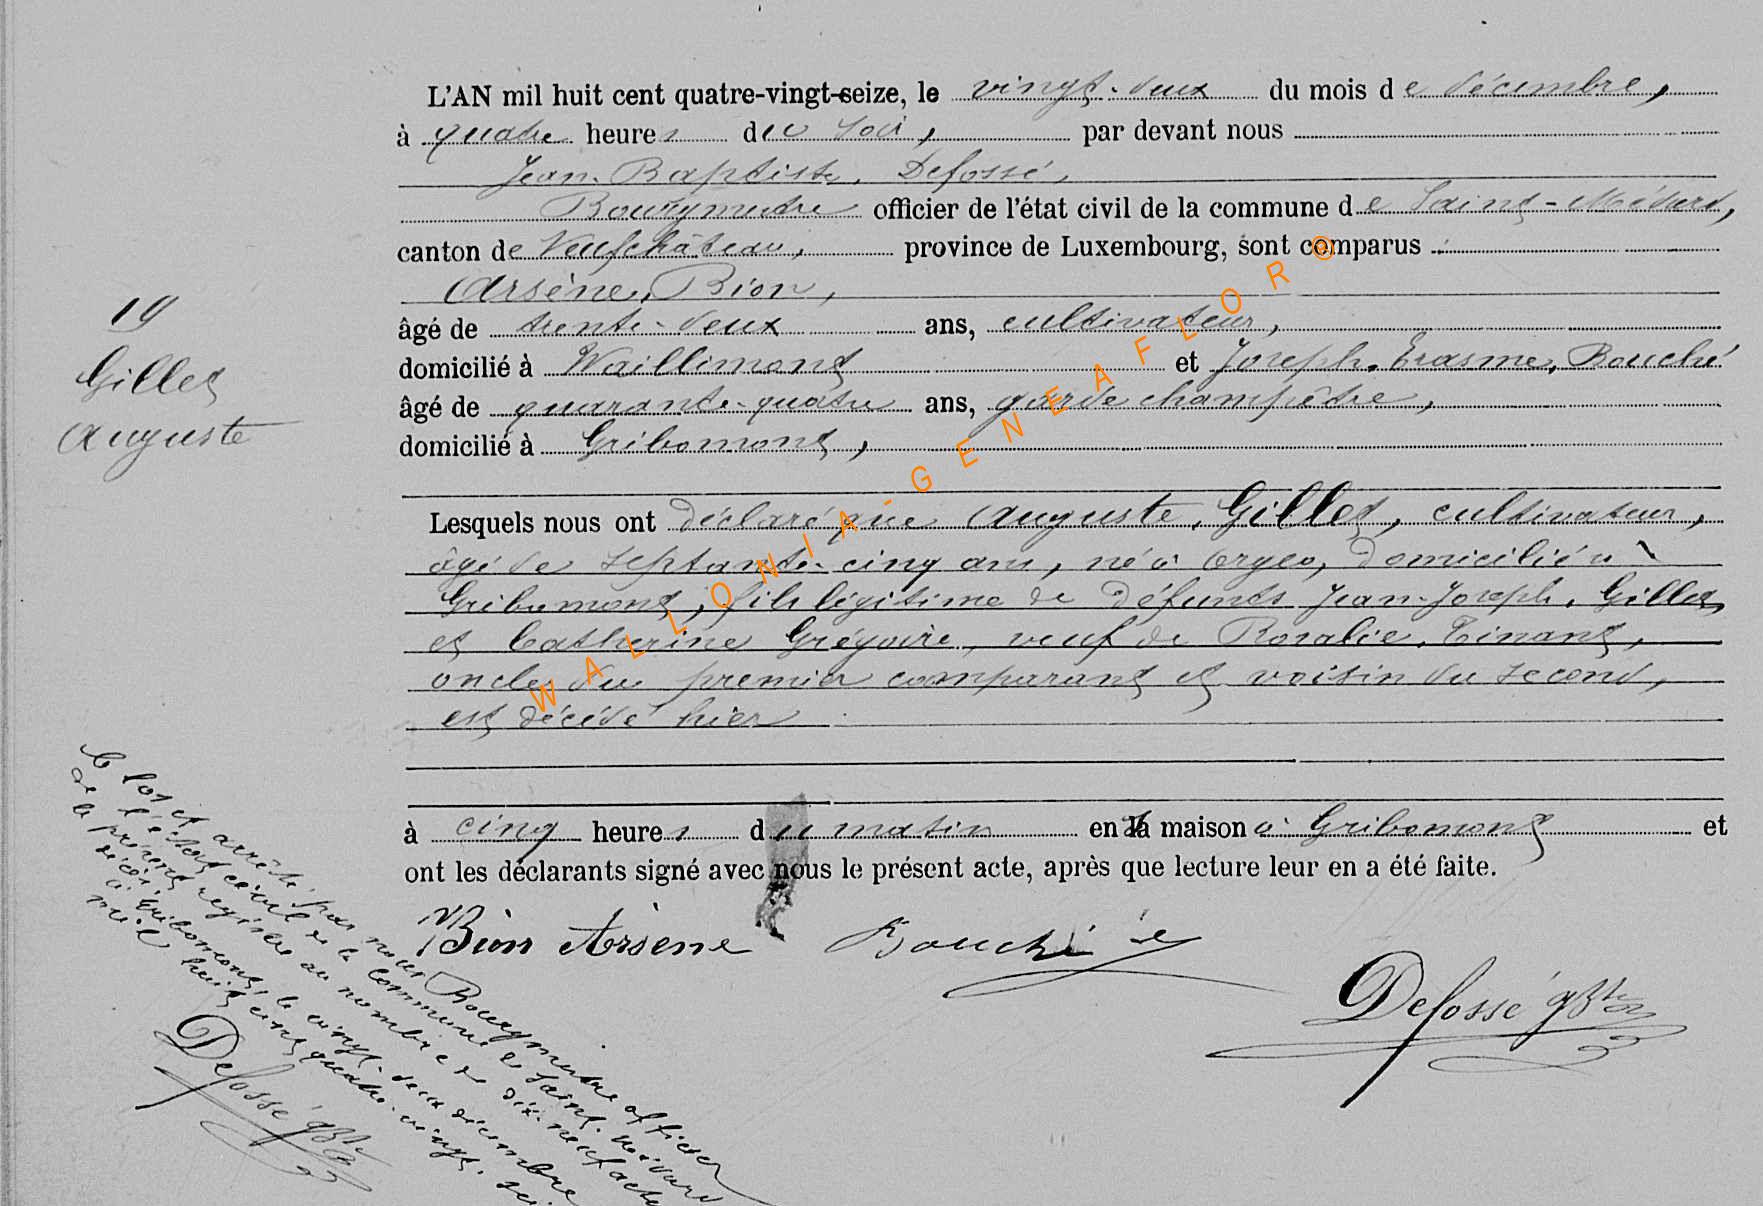 L'AN mil huit cent quatre-vingt-seize, le vingt-deux du mois de décembre,
à quatre heures du soir, par devant nous
Jean-Baptiste, Defossé,
Bourgmestre officier de l'état civil de la commune de Saint-Médard,
canton de Neufchâteau, province de Luxembourg, sont comparus
Arsène, Bion,
âgé de trente-deux ans, cultivateur,
domicilié à Waillimont et Joseph, Erasme, Bouché
âgé de quarante-quatre ans, garde champêtre,
domicilié à Gribomont,
19
Gillet
Auguste
Lesquels nous ont déclaré que Auguste, Gillet, cultivateur,
âgé de septante-cinq ans, né à Orgeo, domicilié à
Gribomont, fils légitime de défunts Jean-Joseph, Gillet
et Catherine Grégoire, veuf de Rosalie, Tinant,
oncle du premier comparant et voisin du second,
est décédé hier
à cinq heures du matin en sa maison à Gribomont et
ont les déclarants signé avec nous le présent acte, après que lecture leur en a été faite.
Bion Arsène Bouché
Defossé
Clos et arrêté par nous Bourgmestre officier
de l'état civil de la commune de Saint-Médard
le présent registre au nombre de dix-neuf actes
à Gribomont, le vingt-deux décembre
mil huit cent quatre-vingt-
Defossé
WALLONIA-GENEAFLOR®